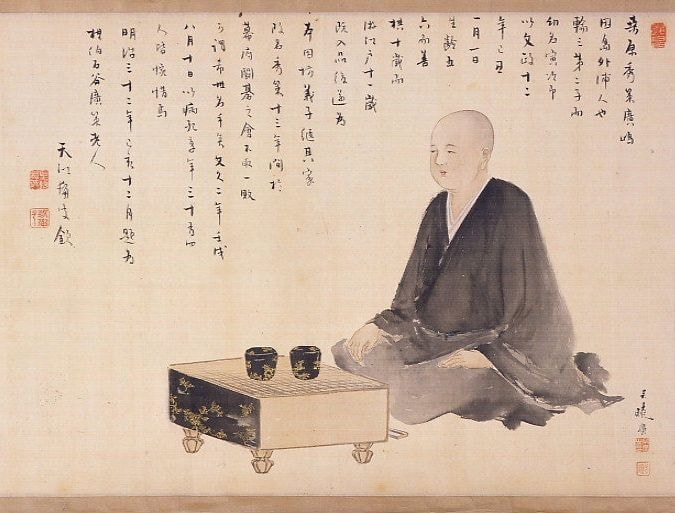 桑原秀策廣嶋
因島外浦人也
輪三第二子而
幼名寅次郎
以文政十二
年己丑
一月一日
生齢五
六而善
棋十歳而
游江戸十一歳
既入品後遂為
本因坊義子継其家
改名秀策十三年間於
幕府開碁之會不取一敗
可謂希世名手矣文久二年壬戌
八月十日以病歿享年三十有四
人皆惋惜焉
明治三十二年己亥十二月題為
棋伯石谷廣策老人
天江